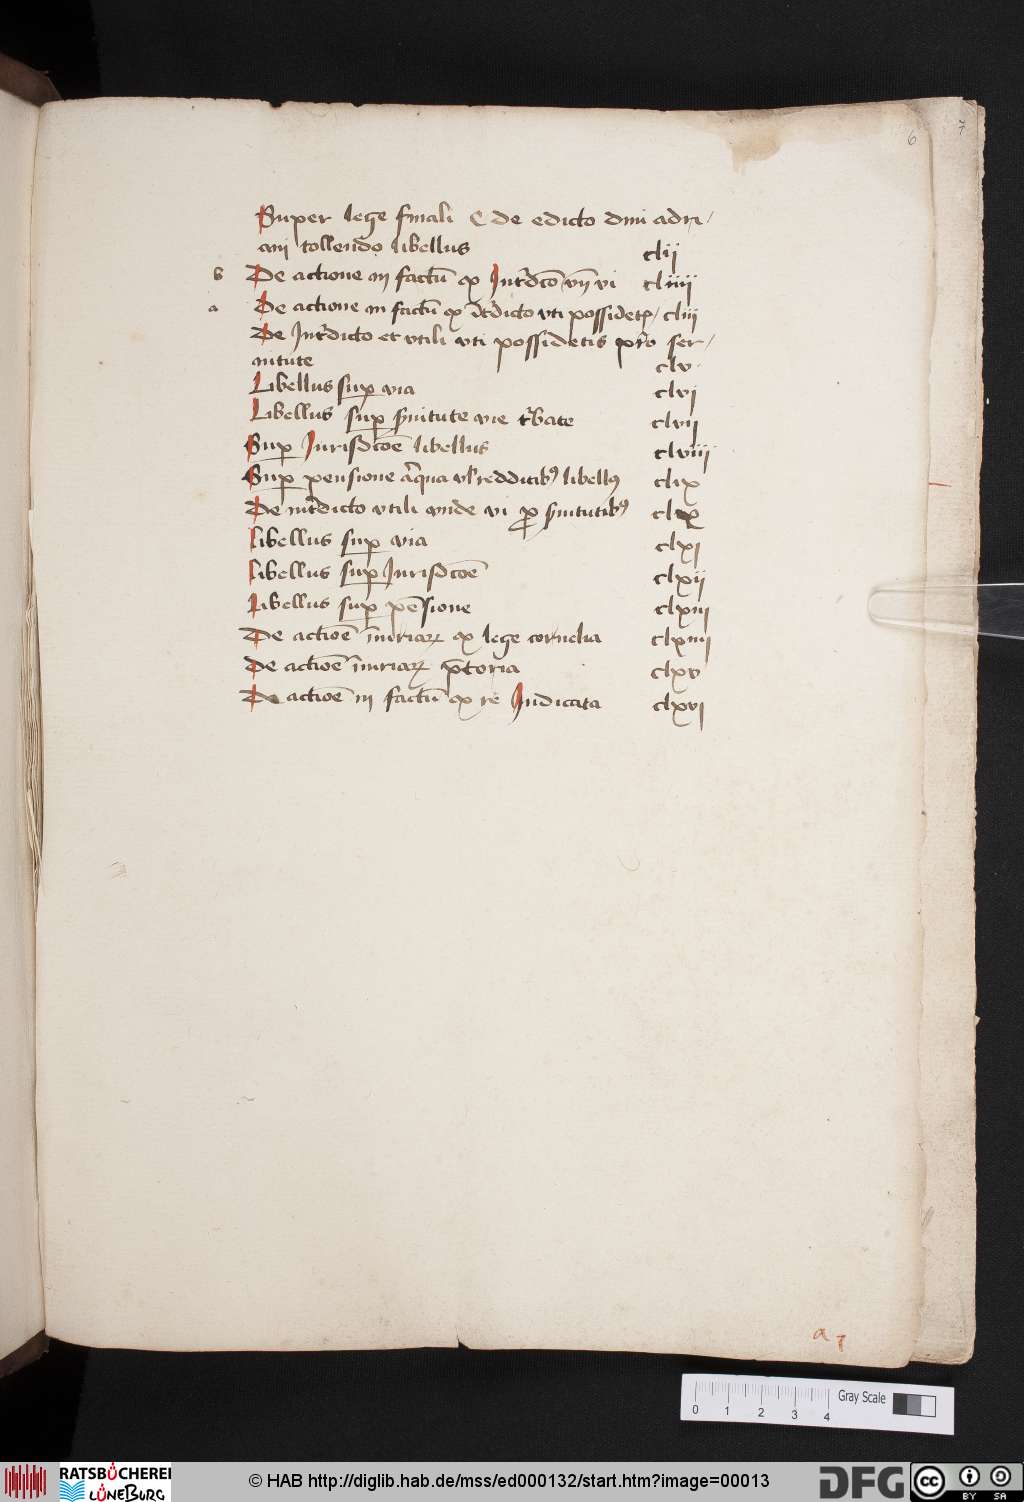 6 7
Super lege finali C de edicto dmi adri/
ani tollendo libellus clii
b De actione in factū ex Int'dc̄o vn̄ vi cliiii
a De actione in factū ex int'dicto vti possidetꝭ cliii
De Int'dicto et vtili vti possidetis pro ser/
uitute clv
Libellus suꝑ via clvi
Libellus suꝑ s'uitute vie t'bate clvii
Suꝑ Jurisdcōe libellus clviii
Suꝑ pensione a'qua vl' redditibꝰ libellꝰ clix
De int'dicto vtili vnde vi ꝓ s'uitutibꝰ clx
Libellus suꝑ via clxi
Libellus suꝑ Jurisdcōe clxii
Libellus suꝑ pēsione clxiii
De actiōe iniuriaꝝ ex lege cornelia clxiiii
De actiōe iniuriaꝝ p̄toria clxv
De actiōe in factū ex re Judicata clxvi
a 7
0 1 2 3 4 Gray Scale
RATSBÜCHEREI LÜNEBURG
© HAB http://diglib.hab.de/mss/ed000132/start.htm?image=00013
DFG
cc BY SA